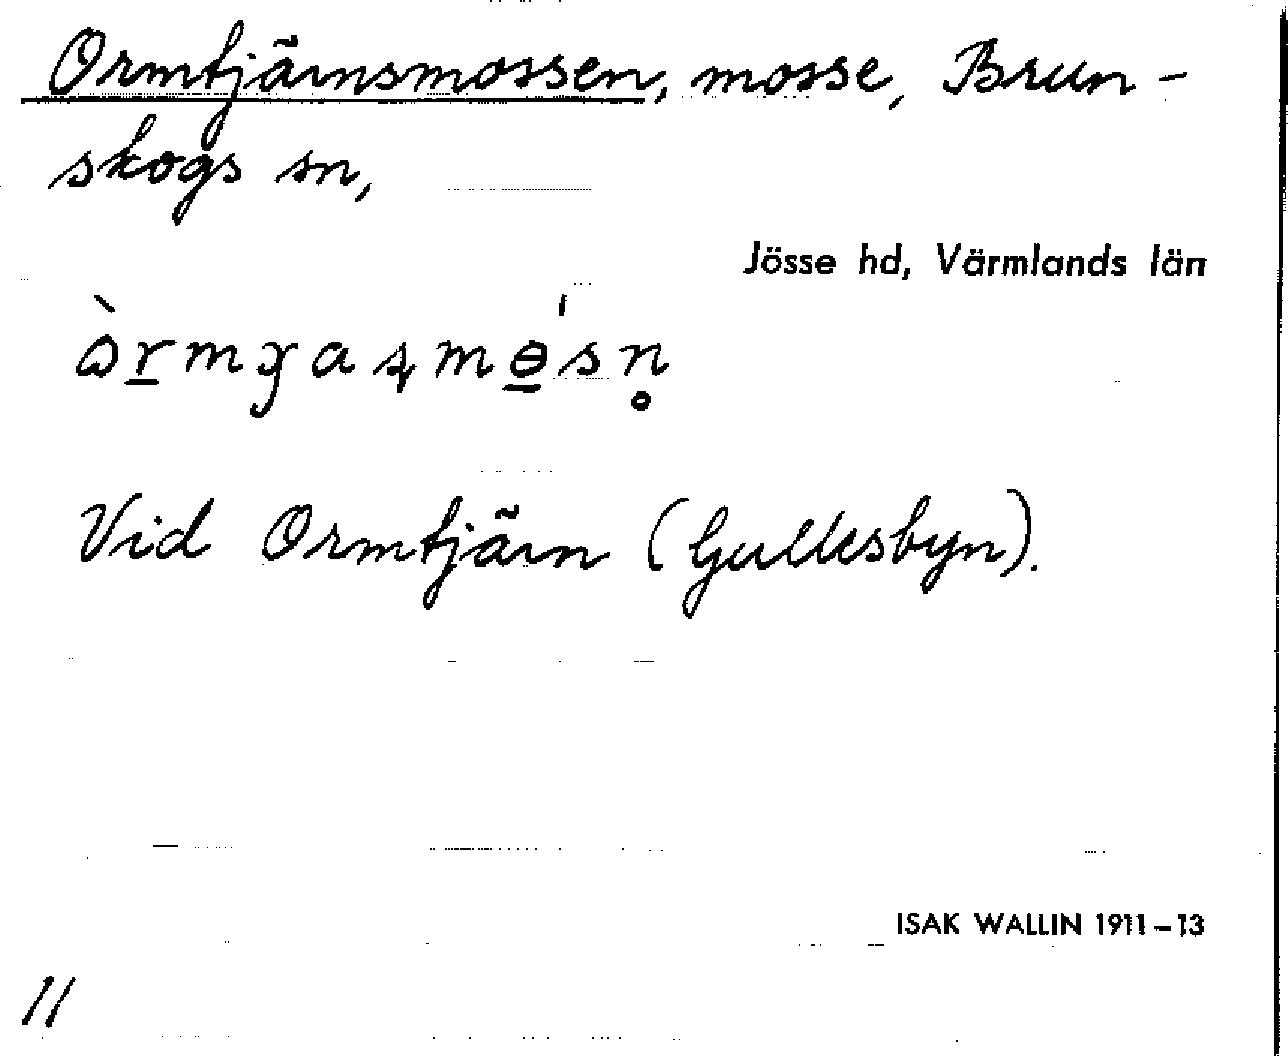 Ormtjärnsmossen, mosse, Brun-
skogs sn,
Jösse hd, Värmlands län
Vid Ormtjärn (Gullesbyn).
ISAK WALLIN 1911–13
11